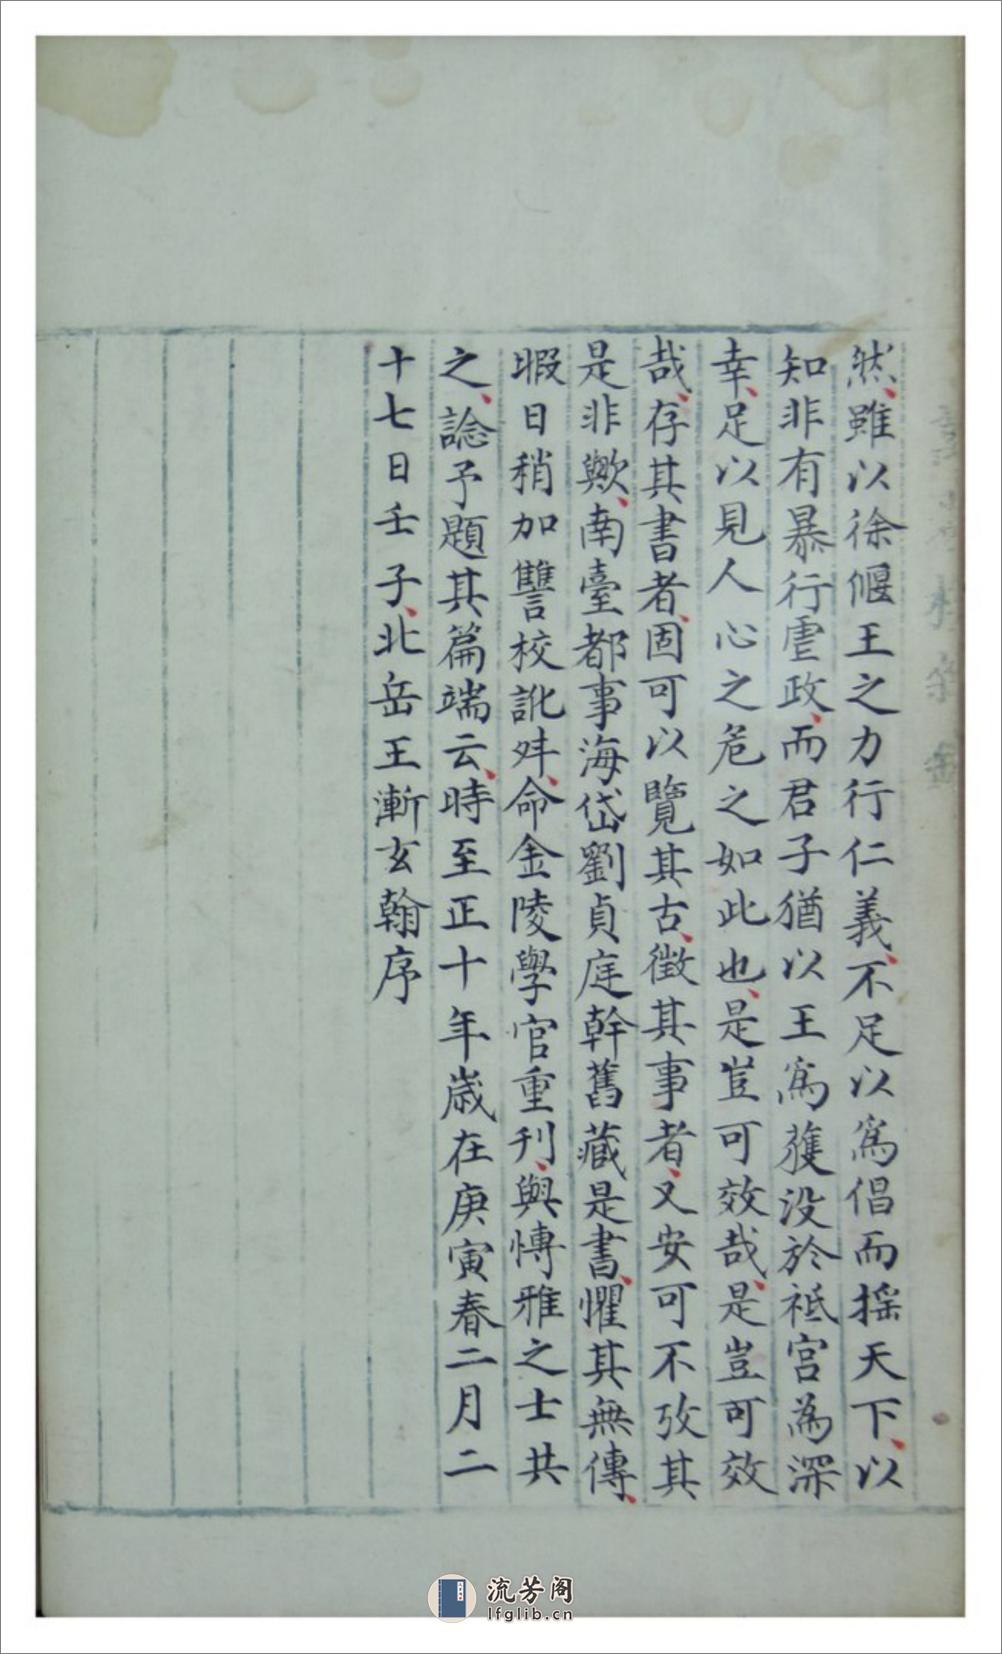 然、雖以徐偃王之力行仁義、不足以爲倡而摇天下、以
知非有暴行虐政、而君子猶以王爲獲没於祗宫為深
幸、足以見人心之危之如此也、是豈可效哉、是豈可效
哉、存其書者、固可以覽其古、徵其事者、又安可不攷其
是非歟、南臺都事海岱劉貞庭幹舊藏是書、懼其無傳、
暇日稍加讐校訛舛、命金陵學官重刊、與博雅之士共
之、諗予題其篇端云、時至正十年歲在庚寅春二月二
十七日壬子、北岳王漸玄翰序
流芳阁
lfglib.cn